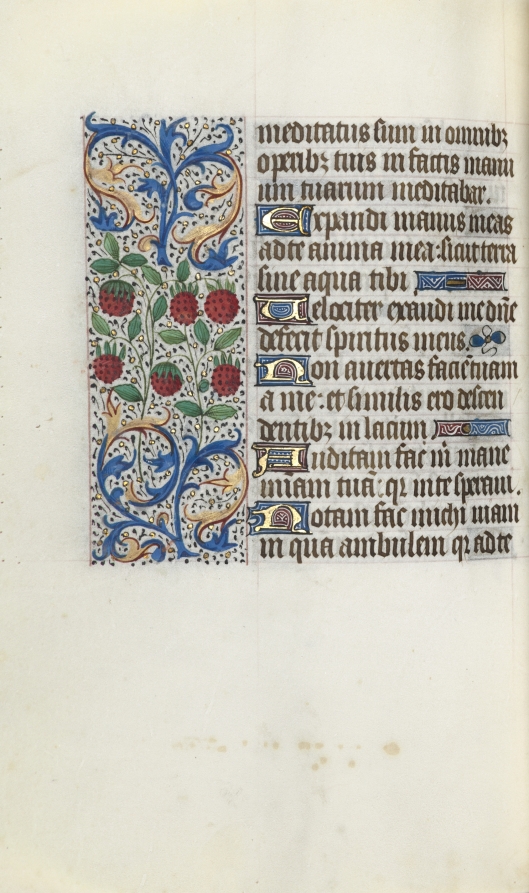 meditatus sum in omnibȝ
operibȝ tuis in factis manu
um tuarum meditabar.
Expandi manus meas
ad te anima mea: sicut terra
sine aqua tibi
Velociter exaudi me dn̄e
defecit spiritus meus.
Non auertas faciē tuam
a me: et similis ero descen
dentibȝ in lacum
Auditam fac m̄ mane
mīam tuā: qꝛ in te speraui.
Notam fac michi uiam
in qua ambulem qꝛ ad te